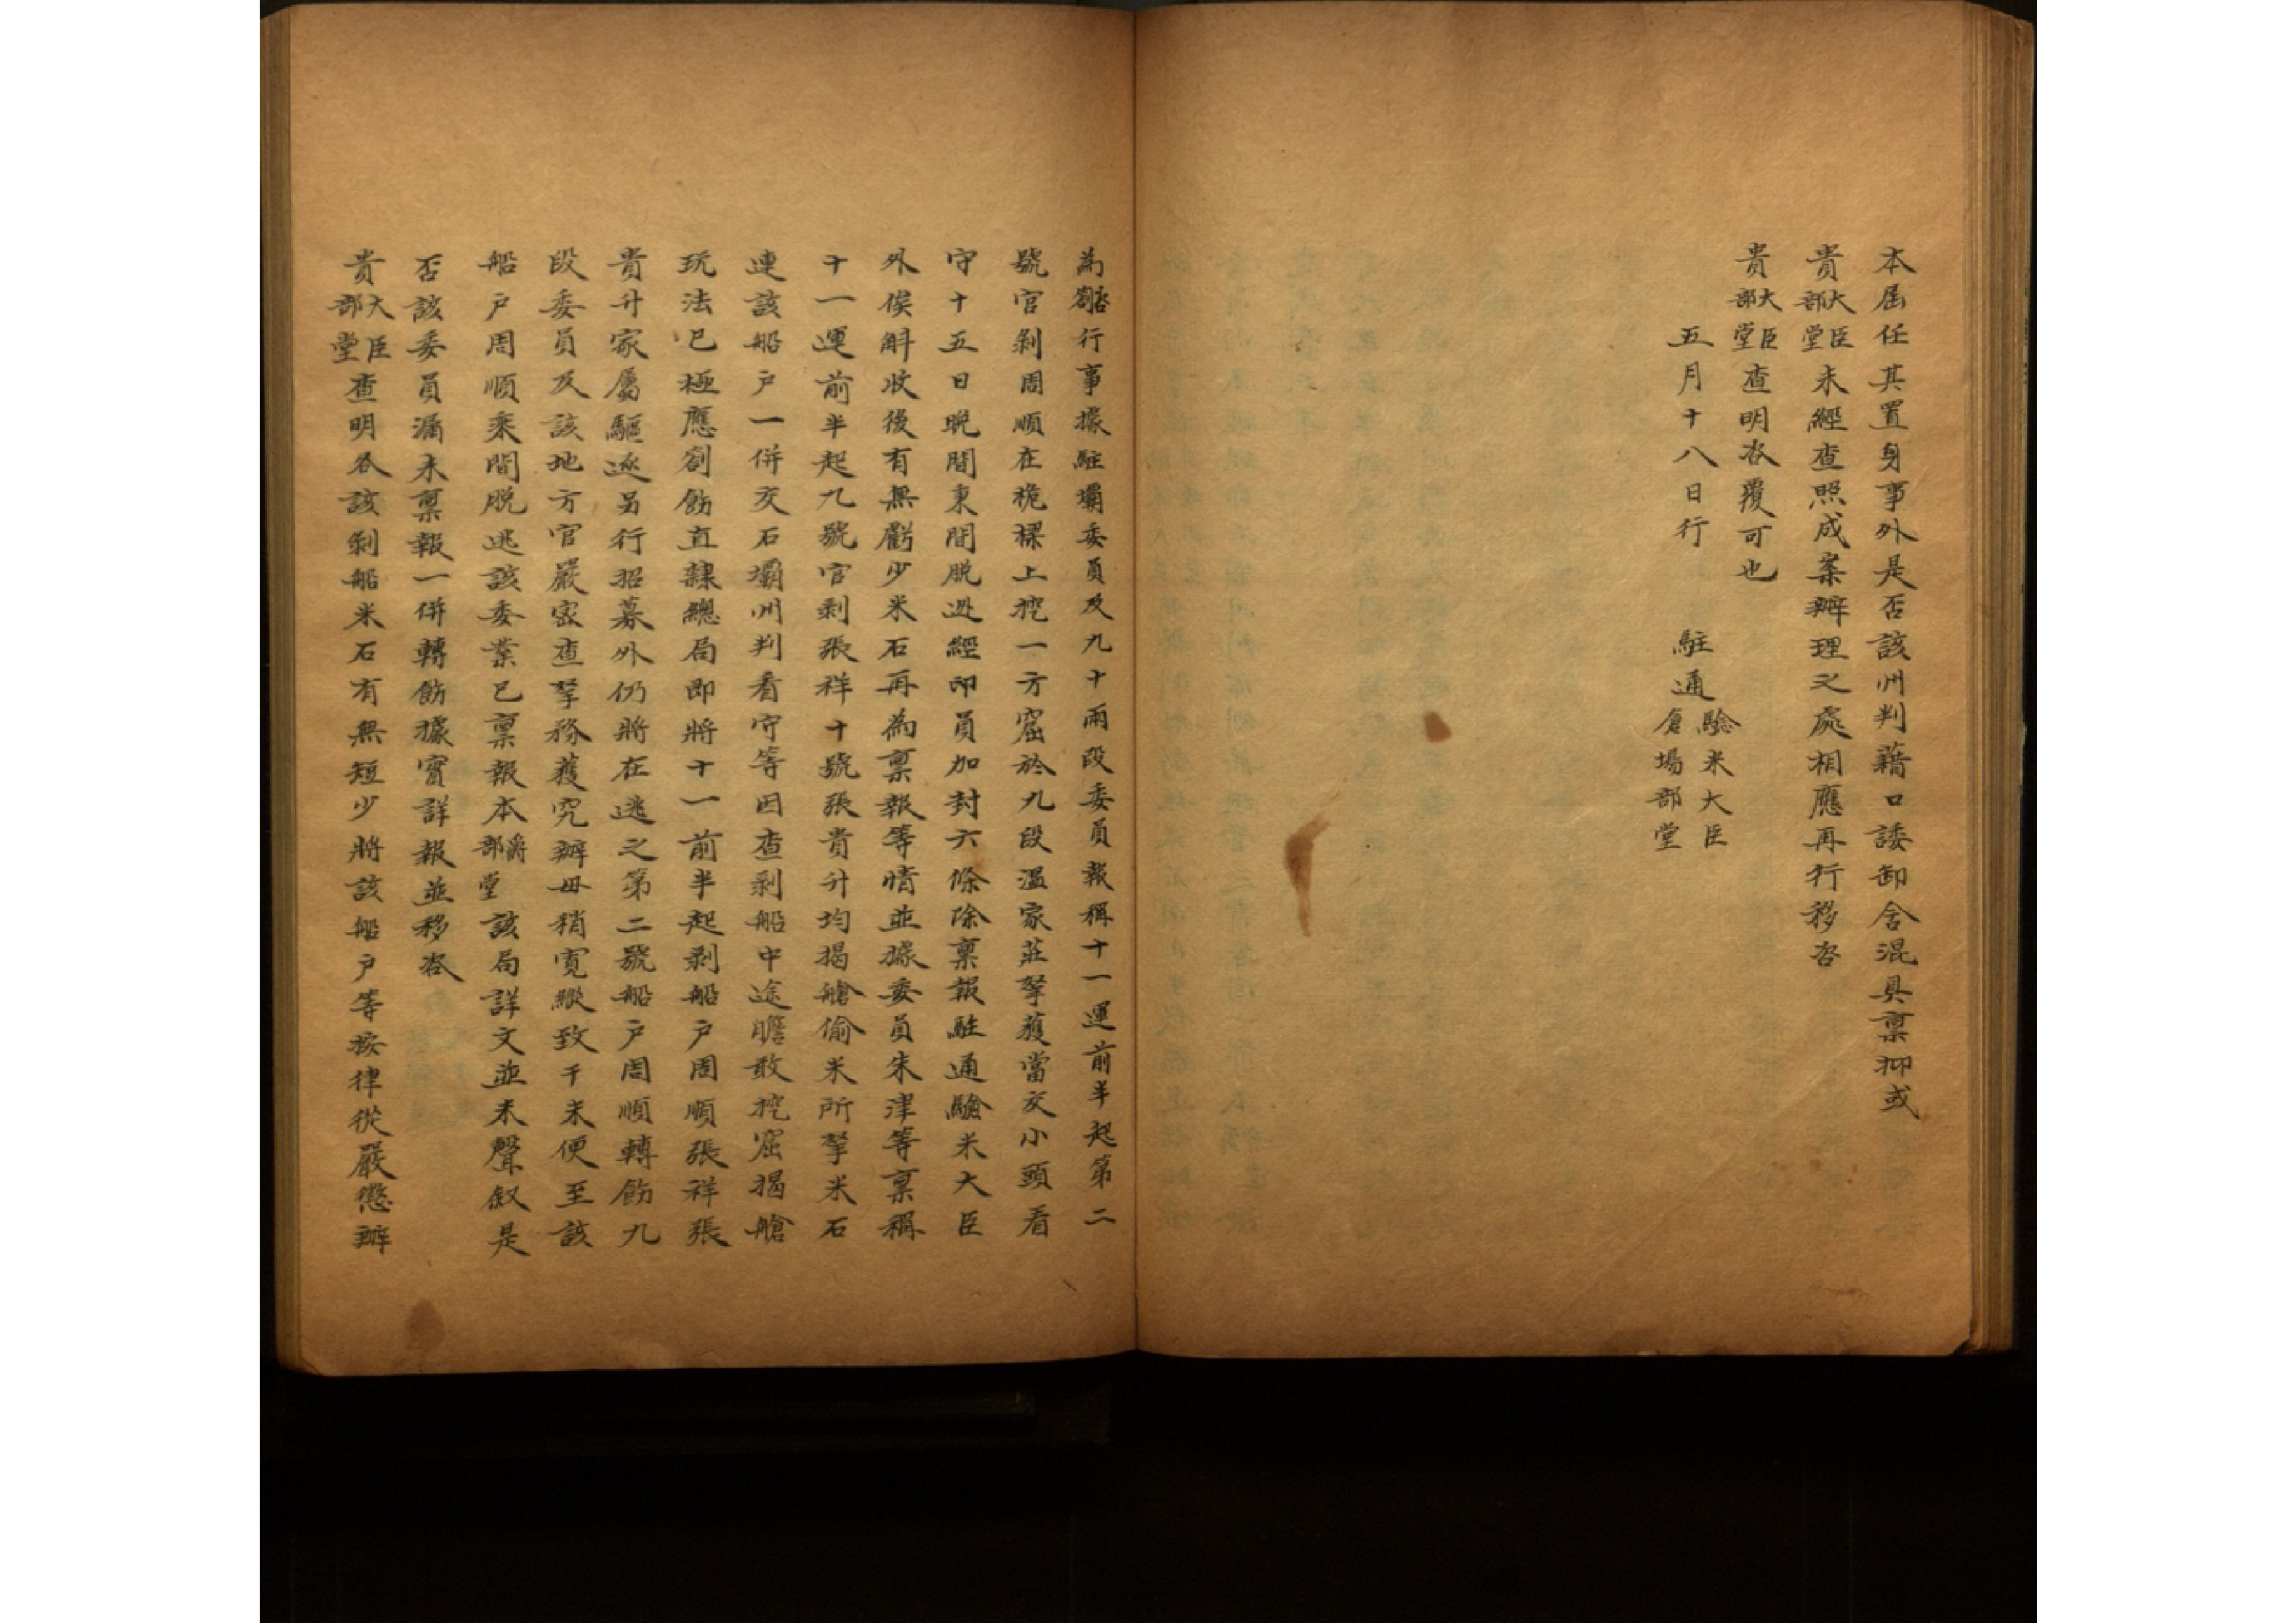 本屆任其置身事外是否該州判藉口諉卸含混具禀抑或
貴大臣部堂未經查照成案辦理之處相應再行移咨
貴大臣部堂查明咨覆可也
五月十八日行 駐通驗米大臣倉場部堂
為咨劄行事據駐壩委員及九十兩段委員報稱十一運前半起第二
號官剝周順在桅樑上挖一方窟於九段溫家莊拏獲當交小頭看
守十五日晚間乘間脫逃經印員加封六條除禀報駐通驗米大臣
外俟斛收後有無虧少米石再為禀報等情並據委員朱津等禀稱
十一運前半起九號官剝張祥十號張貴升均揭艙偷米所拏米石
連該船户一併交石壩州判看守等因查剝船中途瞻敢挖窟揭艙
玩法已極應劄飭直隸總局即將十一前半起剝船户周順張祥張
貴升家屬驅逐另行招募外仍將在逃之第二號船户周順轉飭九
段委員及該地方官嚴密查拏務獲究辦毋稍寬縱致干未便至該
船户周順乘間脫逃該委業已禀報本爵部堂該局詳文並未聲敘是
否該委員漏未禀報一併轉飭據實詳報並移咨
貴大臣部堂查明各該剝船米石有無短少將該船户等按律從嚴懲辦